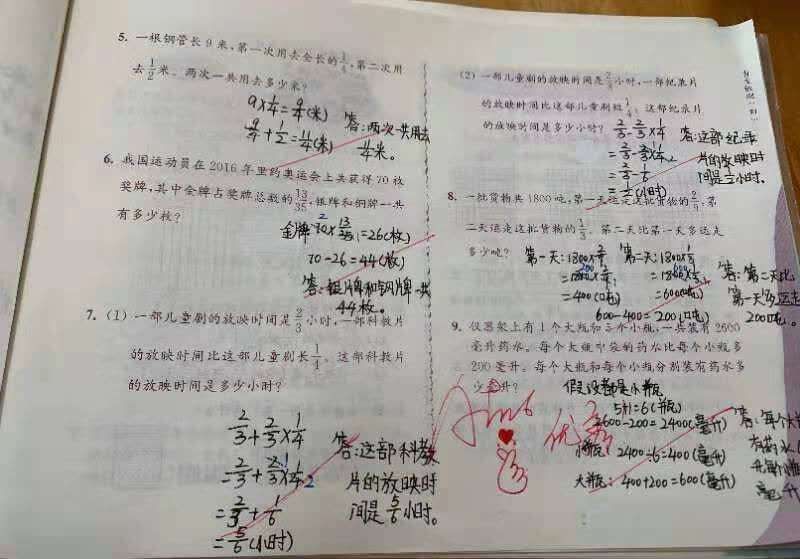 5. 一根钢管长9米,第一次用去全长的1/4,第二次用
去1/2米。两次一共用去多少米?
9×1/4=9/4(米)
9/4+1/2=11/4(米)
答:两次一共用去
11/4米。
6. 我国运动员在2016年里约奥运会上共获得70枚
奖牌,其中金牌占奖牌总数的13/35,银牌和铜牌一共
有多少枚?
金牌:70×13/35=26(枚)
70-26=44(枚)
答:银牌和铜牌一共
44枚。
7. (1) 一部儿童剧的放映时间是2/3小时,一部科教片
的放映时间比这部儿童剧长1/4。这部科教片
的放映时间是多少小时?
2/3+2/3×1/4
=2/3+2/3×1/4
=2/3+1/6
=5/6(小时)
答:这部科教
片的放映时
间是5/6小时。
(2) 一部儿童剧的放映时间是2/3小时,一部纪录片
的放映时间比这部儿童剧短1/4。这部纪录片
的放映时间是多少小时?
2/3-2/3×1/4
=2/3-2/3×1/4
=2/3-1/6
=1/2(小时)
答:这部纪录
片的放映时
间是1/2小时。
8. 一批货物共1800吨,第一天运走这批货物的2/9,第
二天运走这批货物的1/3。第二天比第一天多运走
多少吨?
第一天:1800×2/9
=1800×2/9
=400(吨)
第二天:1800×1/3
=1800×1/3
=600(吨)
600-400=200(吨)
答:第二天比
第一天多运走
200吨。
9. 仪器架上有1个大瓶和5个小瓶,一共装有2600
毫升药水。每个大瓶中装的药水比每个小瓶多
200毫升。每个大瓶和每个小瓶分别装有药水多
少毫升?
假设都是小瓶
5+1=6(瓶)
2600-200=2400(毫升)
小瓶:2400÷6=400(毫升)
大瓶:400+200=600(毫升)
答:每个大
毫升
优秀